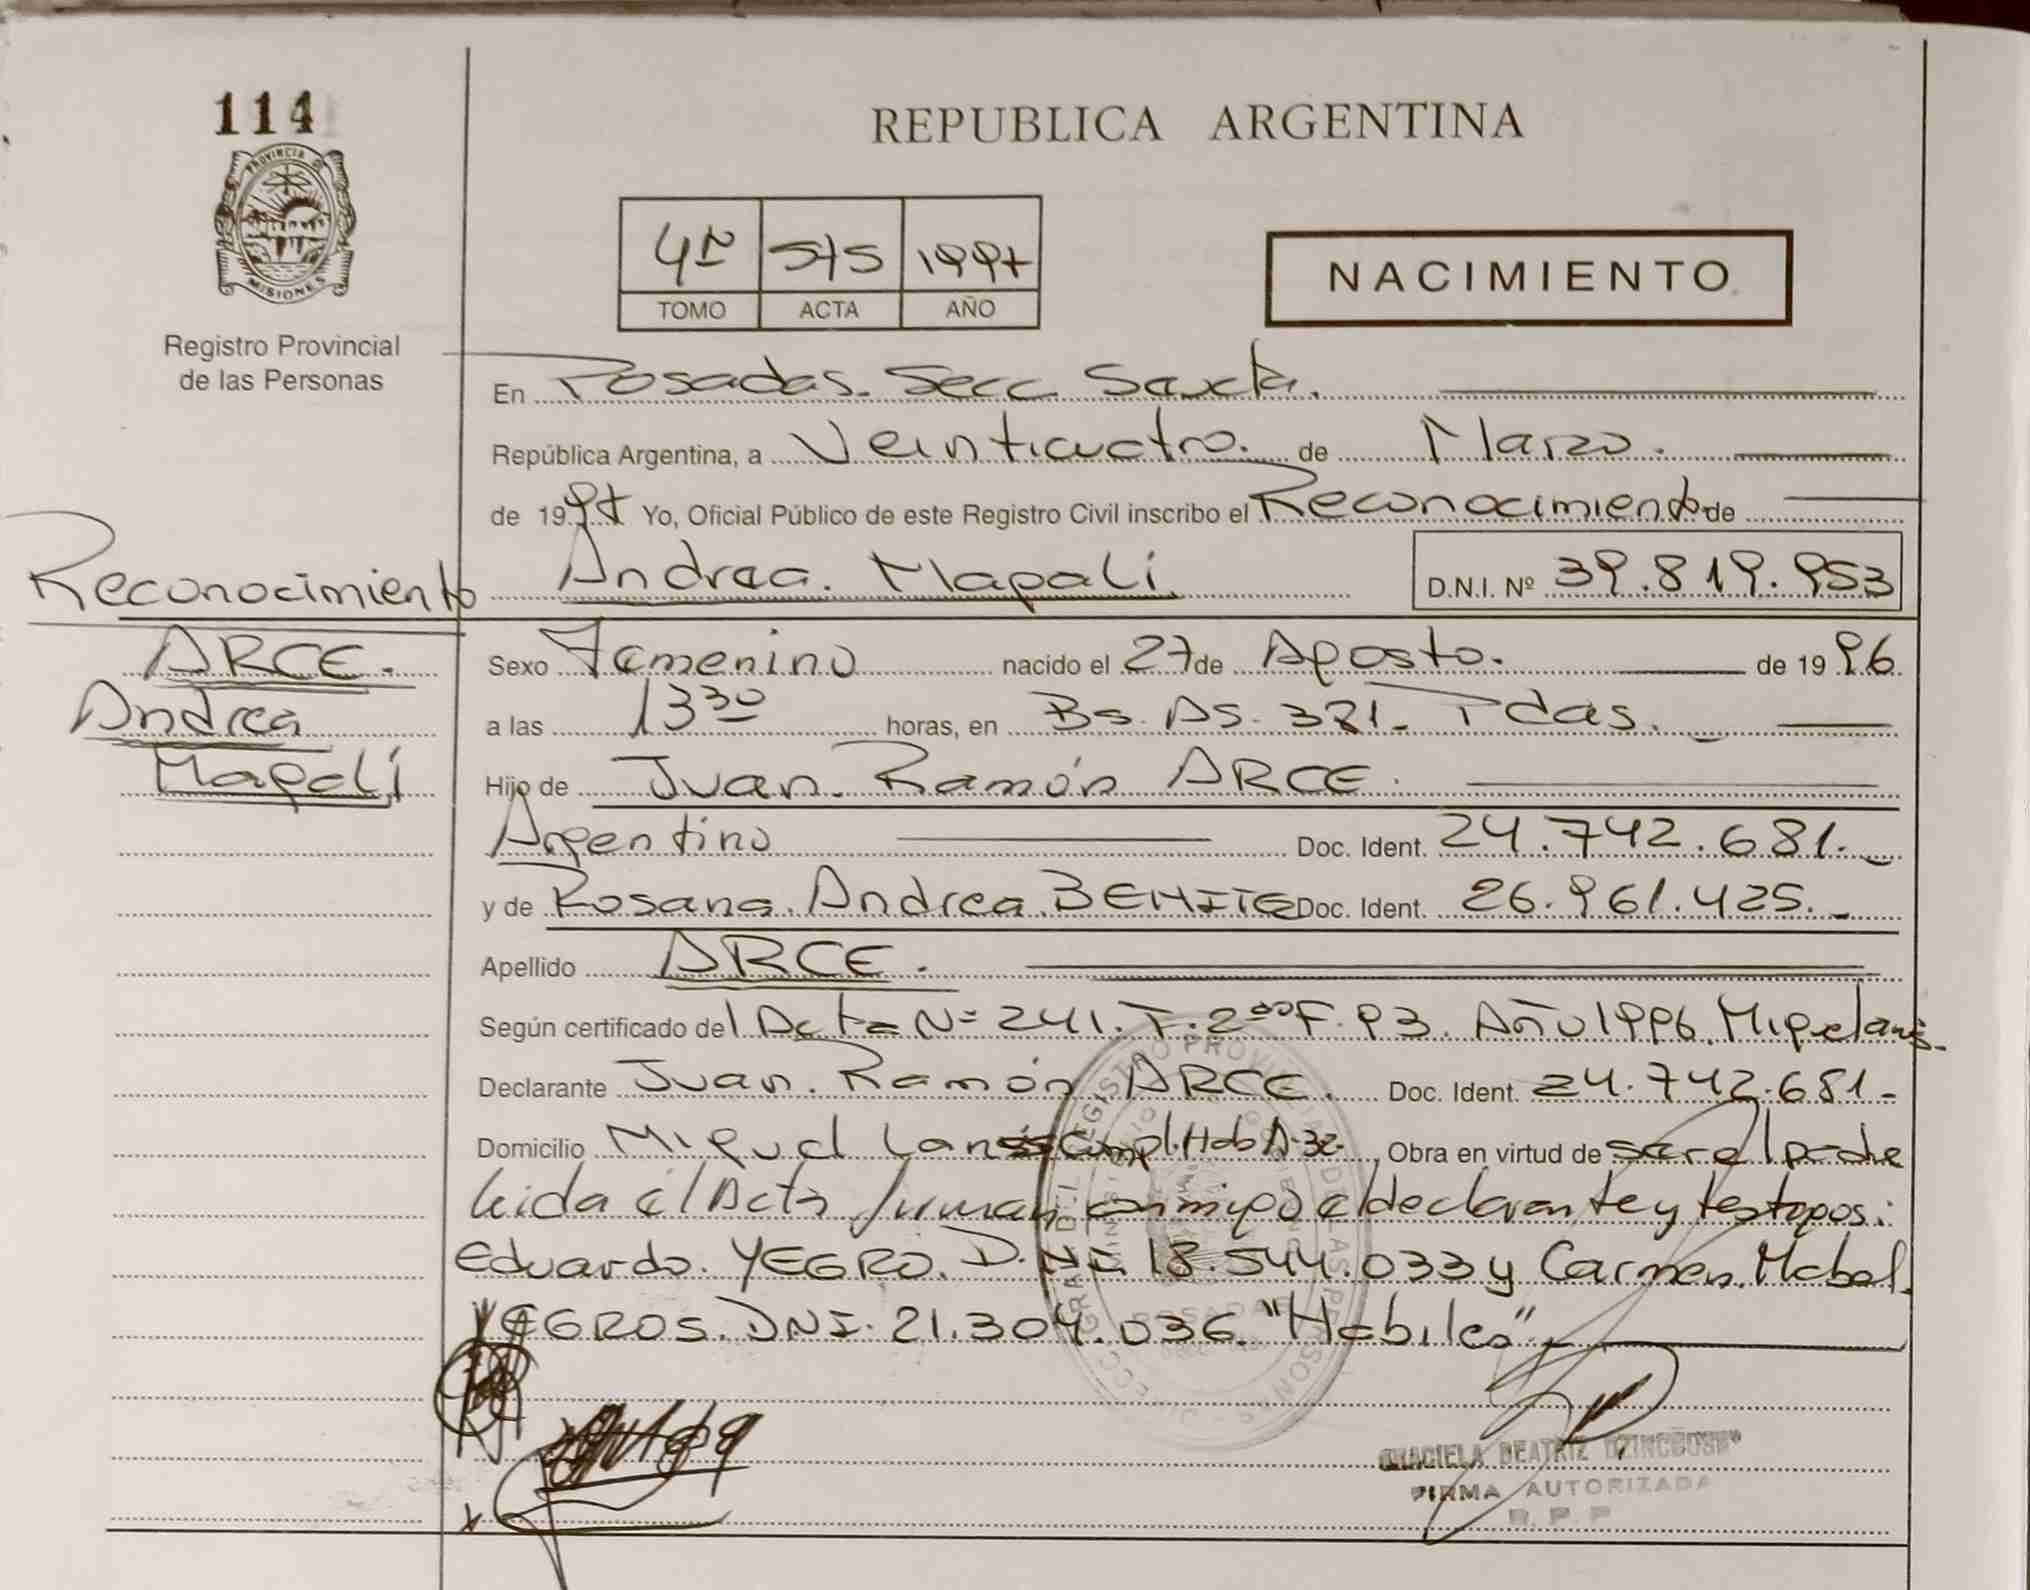 114
PROVINCIA DE
MISIONES
Registro Provincial
de las Personas
REPUBLICA ARGENTINA
4º 575 1997
TOMO ACTA AÑO
NACIMIENTO
En Posadas. Secc. Sexta.
República Argentina, a Veinticuatro. de Marzo.
de 1997 Yo, Oficial Público de este Registro Civil inscribo el Reconocimiento de
Andrea. Magalí D.N.I. Nº 39.819.953
Reconocimiento
ARCE.
Andrea
Magalí
Sexo Femenino nacido el 27 de Agosto. de 1996.
a las 13 30 horas, en Bs. As. 381. Pdas.
Hijo de Juan. Ramón ARCE.
Argentino Doc. Ident. 24.742.681.
y de Rosana. Andrea. BENITE Doc. Ident. 26.961.425.
Apellido ARCE.
Según certificado del Acta Nº 241. T. 2do F. 93. Año 1996.
Declarante Juan. Ramón ARCE. Doc. Ident. 24.742.681-
Domicilio Miguel Lanús Compl. Hab A-32. Obra en virtud de ser el padre
leida el Acta firman conmigo el declarante y testigos:
Eduardo. YEGRO. D.NI. 18.544.033 y Carmen. Mabel.
YEGROS. DNI. 21.304.036. "Habiles".
REGISTRO PROVINCIAL DE LAS PERSONAS
POSADAS
GRACIELA BEATRIZ
FIRMA AUTORIZADA
R. P. P